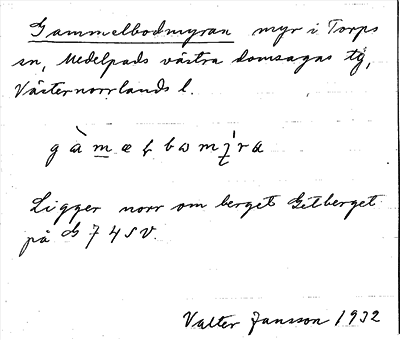 Gammelbodmyran myr i Torps
sn, Medelpads västra domsagas tg,
Västernorrlands l.
Ligger norr om berget Getberget
på G 74 SV.
Valter Jansson 1932